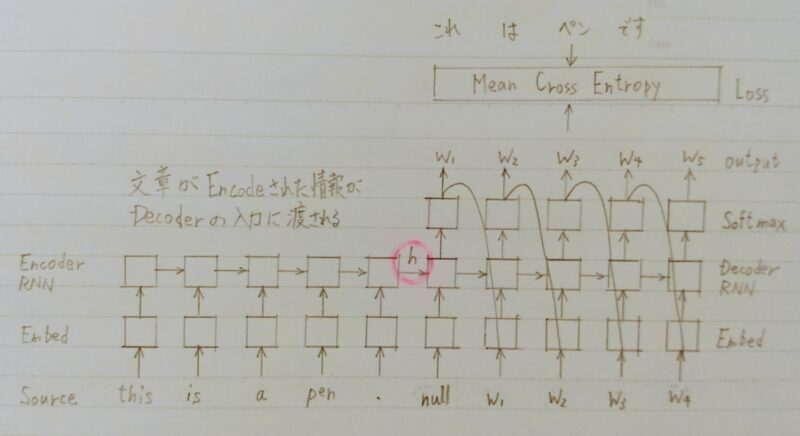 これ は ペン です
Mean Cross Entropy Loss
W1 W2 W3 W4 W5 output
文章がEncodeされた情報が
Decoderの入力に渡される
Softmax
h
Encoder
RNN
Decoder
RNN
Embed Embed
Source this is a pen . null W1 W2 W3 W4